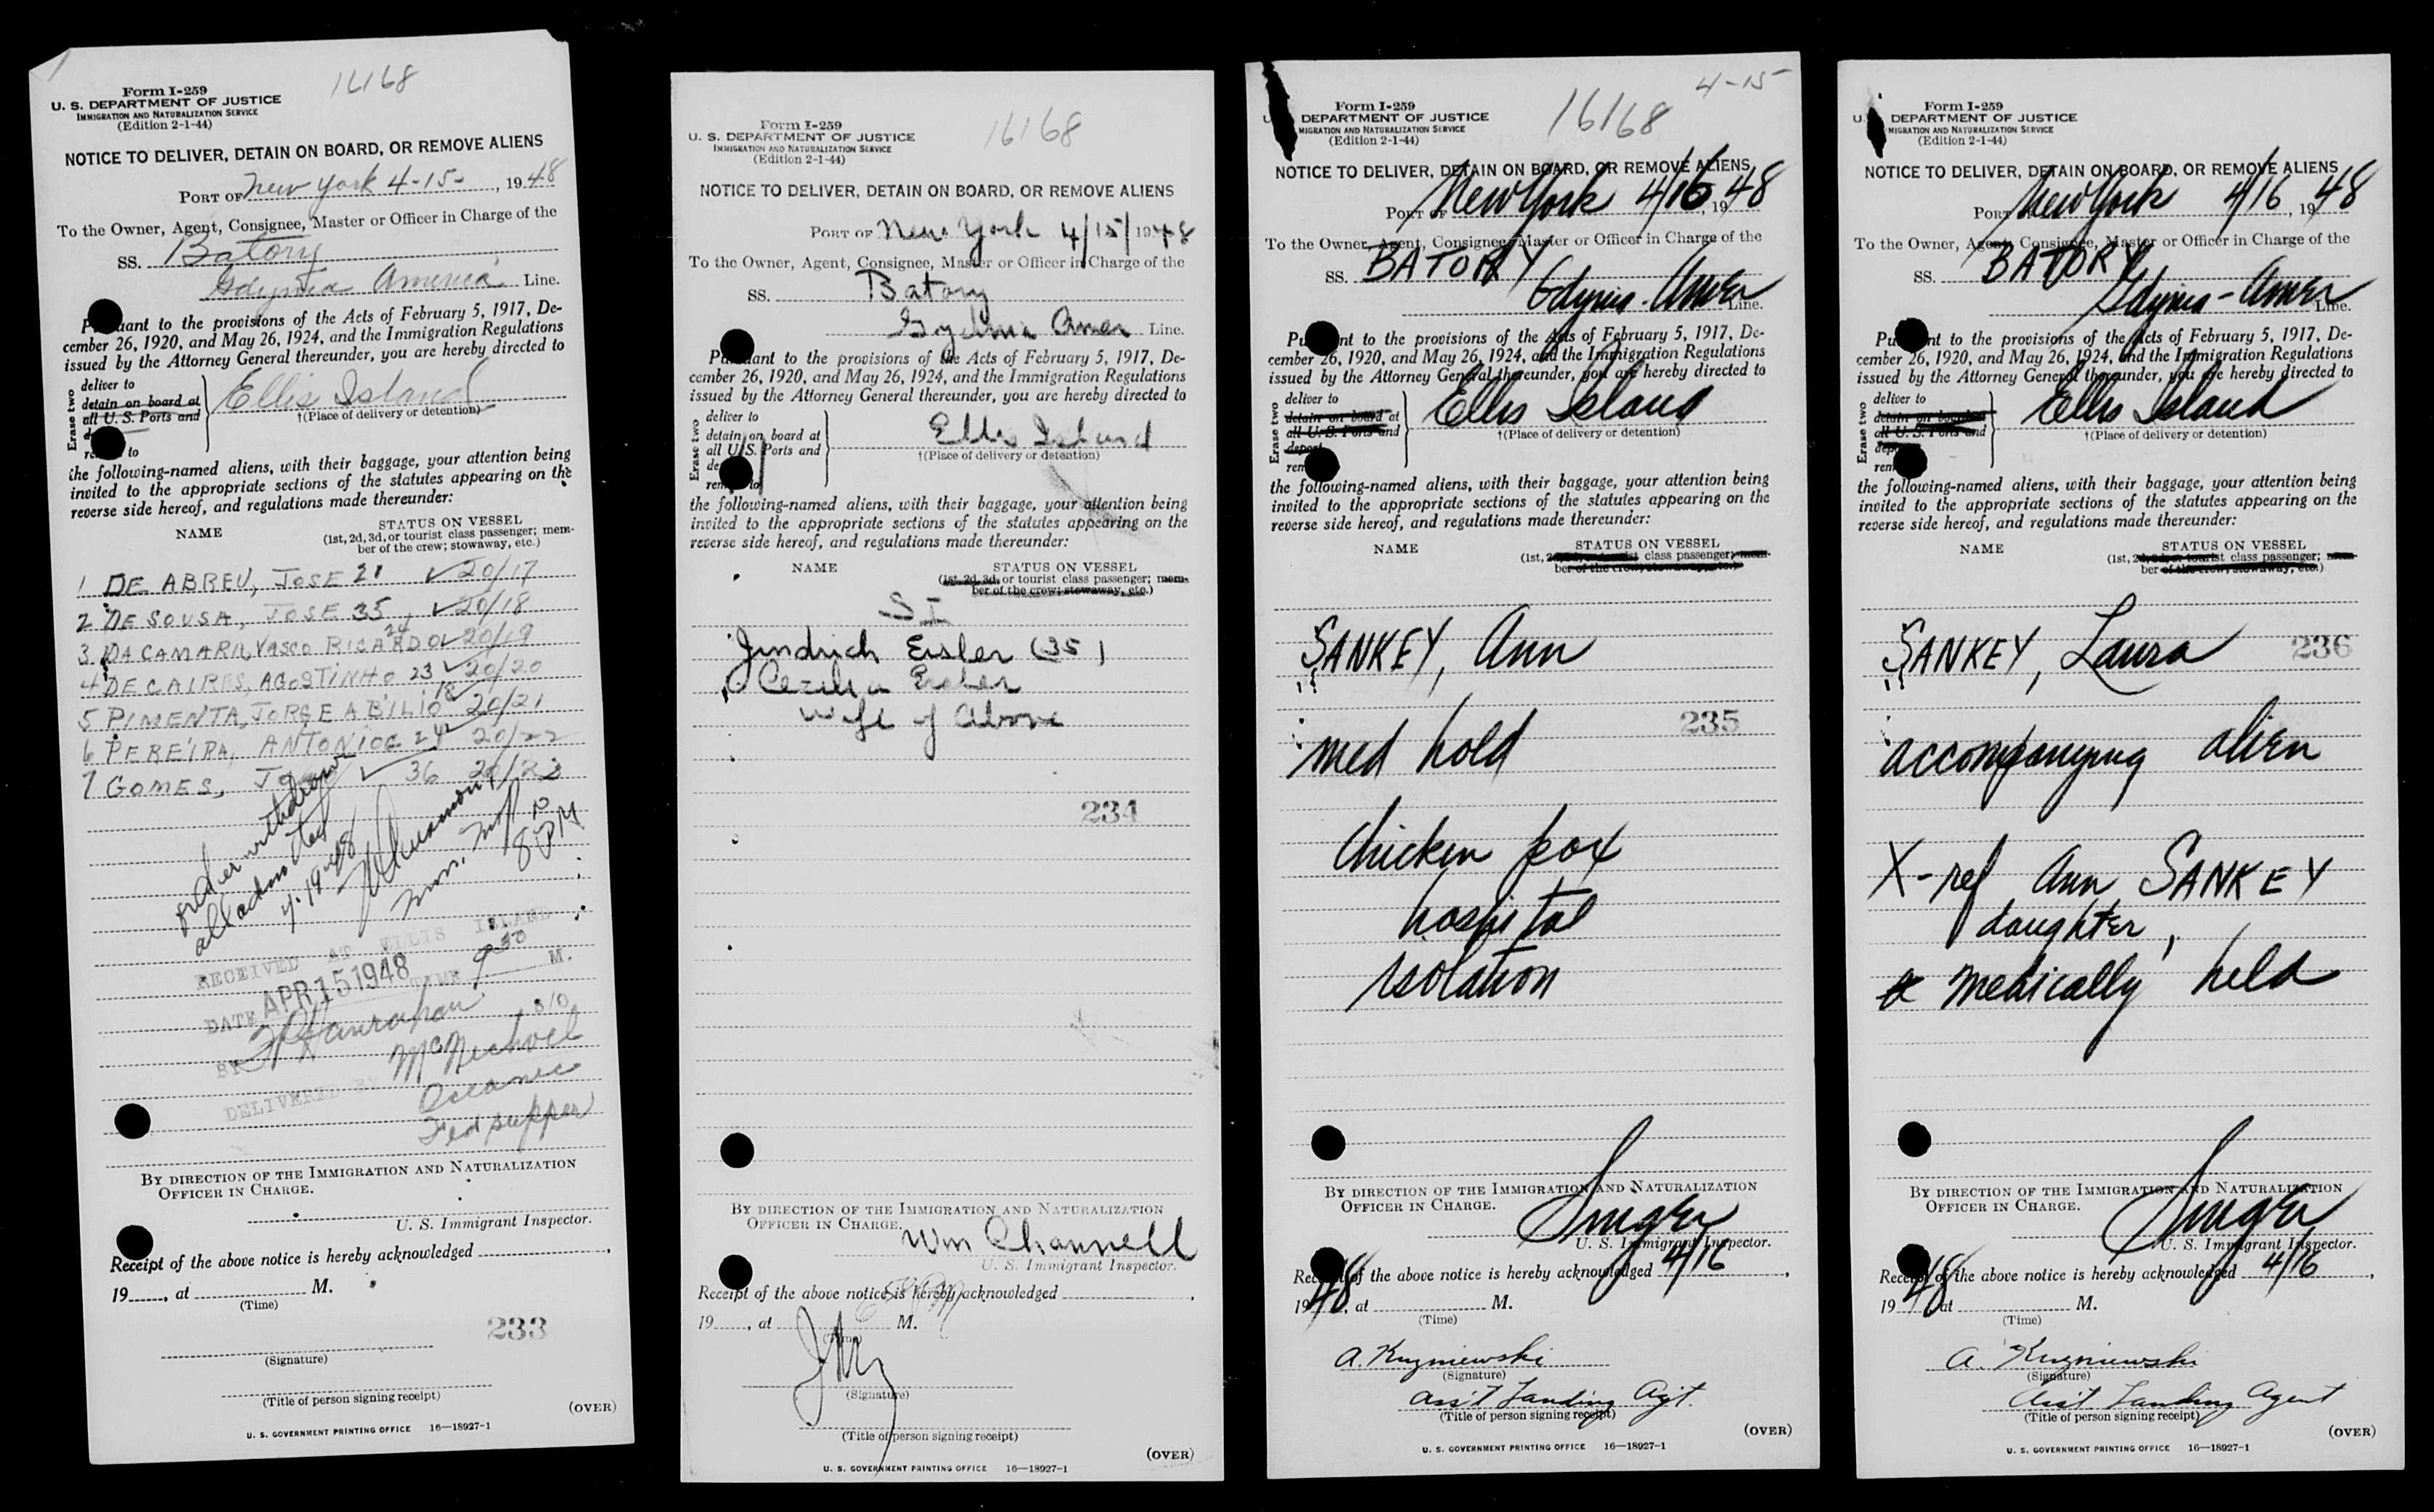 16168
Form I-259
U. S. DEPARTMENT OF JUSTICE
IMMIGRATION AND NATURALIZATION SERVICE
(Edition 2-1-44)
NOTICE TO DELIVER, DETAIN ON BOARD, OR REMOVE ALIENS
PORT OF New York 4-15-, 1948
To the Owner, Agent, Consignee, Master or Officer in Charge of the
SS. Batory
Gdynia America Line.
Pursuant to the provisions of the Acts of February 5, 1917, De-
cember 26, 1920, and May 26, 1924, and the Immigration Regulations
issued by the Attorney General thereunder, you are hereby directed to
Erase two
deliver to
detain on board at
all U. S. Ports and
to
Ellis Island
†(Place of delivery or detention)
the following-named aliens, with their baggage, your attention being
invited to the appropriate sections of the statutes appearing on the
reverse side hereof, and regulations made thereunder:
NAME
STATUS ON VESSEL
(1st, 2d, 3d, or tourist class passenger; mem-
ber of the crew; stowaway, etc.)
1 DE ABREU, JOSE 21 ✓ 20/17
2 DE SOUSA, JOSE 35, ✓ 20/18
3 DA CAMARA, VASCO RICARDO 24 ✓ 20/19
4 DE CAIRES, AGOSTINHO 23 ✓ 20/20
5 PIMENTA, JORGE ABILIO 18 ✓ 20/21
6 PEREIRA, ANTONIO 24 ✓ 20/22
7 GOMES, ✓ 36 20/23
order withdrawn
all admitted
4-19-48
8 PM
RECEIVED AT ELLIS ISLAND
DATE APR 15 1948 TIME M.
BY Hanrahan
DELIVERED BY
Oceanic
Fed supper
BY DIRECTION OF THE IMMIGRATION AND NATURALIZATION
OFFICER IN CHARGE.
U. S. Immigrant Inspector.
Receipt of the above notice is hereby acknowledged
19, at M.
(Time)
233
(Signature)
(Title of person signing receipt)
(OVER)
U. S. GOVERNMENT PRINTING OFFICE 16—18927-1
16168
Form I-259
U. S. DEPARTMENT OF JUSTICE
IMMIGRATION AND NATURALIZATION SERVICE
(Edition 2-1-44)
NOTICE TO DELIVER, DETAIN ON BOARD, OR REMOVE ALIENS
PORT OF New York 4/15/1948
To the Owner, Agent, Consignee, Master or Officer in Charge of the
SS. Batory
Amer Line.
Pursuant to the provisions of the Acts of February 5, 1917, De-
cember 26, 1920, and May 26, 1924, and the Immigration Regulations
issued by the Attorney General thereunder, you are hereby directed to
Erase two
deliver to
detain on board at
all U. S. Ports and
Ellis Island
†(Place of delivery or detention)
the following-named aliens, with their baggage, your attention being
invited to the appropriate sections of the statutes appearing on the
reverse side hereof, and regulations made thereunder:
NAME
STATUS ON VESSEL
(1st, 2d, 3d, or tourist class passenger; mem-
ber of the crew; stowaway, etc.)
SI
Jindrich Eisler (35)
Cecilia Eisler
wife of above
234
BY DIRECTION OF THE IMMIGRATION AND NATURALIZATION
OFFICER IN CHARGE.
Wm Channell
U. S. Immigrant Inspector.
Receipt of the above notice is hereby acknowledged
19, at M.
(Time)
(Signature)
(Title of person signing receipt)
(OVER)
U. S. GOVERNMENT PRINTING OFFICE 16—18927-1
4-15
16168
Form I-259
U. S. DEPARTMENT OF JUSTICE
IMMIGRATION AND NATURALIZATION SERVICE
(Edition 2-1-44)
NOTICE TO DELIVER, DETAIN ON BOARD, OR REMOVE ALIENS
PORT OF New York 4/16, 1948
To the Owner, Agent, Consignee, Master or Officer in Charge of the
SS. BATORY
Gdynia-Amer Line.
Pursuant to the provisions of the Acts of February 5, 1917, De-
cember 26, 1920, and May 26, 1924, and the Immigration Regulations
issued by the Attorney General thereunder, you are hereby directed to
Erase two
deliver to
detain on board at
all U. S. Ports and
deport
Ellis Island
†(Place of delivery or detention)
the following-named aliens, with their baggage, your attention being
invited to the appropriate sections of the statutes appearing on the
reverse side hereof, and regulations made thereunder:
NAME
STATUS ON VESSEL
(1st, class passenger; mem-
ber of the crew, stowaway, etc.)
SANKEY, Ann
235
med hold
chicken pox
hospital
isolation
BY DIRECTION OF THE IMMIGRATION AND NATURALIZATION
OFFICER IN CHARGE.
Singer
U. S. Immigrant Inspector.
Receipt of the above notice is hereby acknowledged 4/16,
1948, at M.
(Time)
A. Kuzniewski
(Signature)
Ass't Landing Agt.
(Title of person signing receipt)
(OVER)
U. S. GOVERNMENT PRINTING OFFICE 16—18927-1
Form I-259
U. S. DEPARTMENT OF JUSTICE
IMMIGRATION AND NATURALIZATION SERVICE
(Edition 2-1-44)
NOTICE TO DELIVER, DETAIN ON BOARD, OR REMOVE ALIENS
PORT OF New York 4/16, 1948
To the Owner, Agent, Consignee, Master or Officer in Charge of the
SS. BATORY
Gdynia-Amer Line.
Pursuant to the provisions of the Acts of February 5, 1917, De-
cember 26, 1920, and May 26, 1924, and the Immigration Regulations
issued by the Attorney General thereunder, you are hereby directed to
Erase two
deliver to
detain on board
all U. S. Ports and
Ellis Island
†(Place of delivery or detention)
the following-named aliens, with their baggage, your attention being
invited to the appropriate sections of the statutes appearing on the
reverse side hereof, and regulations made thereunder:
NAME
STATUS ON VESSEL
(1st, 2d, 3d, or tourist class passenger; mem-
ber of the crew, stowaway, etc.)
SANKEY, Laura 236
accompanying alien
X-ref Ann SANKEY
daughter,
medically held
BY DIRECTION OF THE IMMIGRATION AND NATURALIZATION
OFFICER IN CHARGE.
Singer
U. S. Immigrant Inspector.
Receipt of the above notice is hereby acknowledged 4/16,
1948 at M.
(Time)
A. Kuzniewski
(Signature)
Ass't Landing Agent
(Title of person signing receipt)
(OVER)
U. S. GOVERNMENT PRINTING OFFICE 16—18927-1